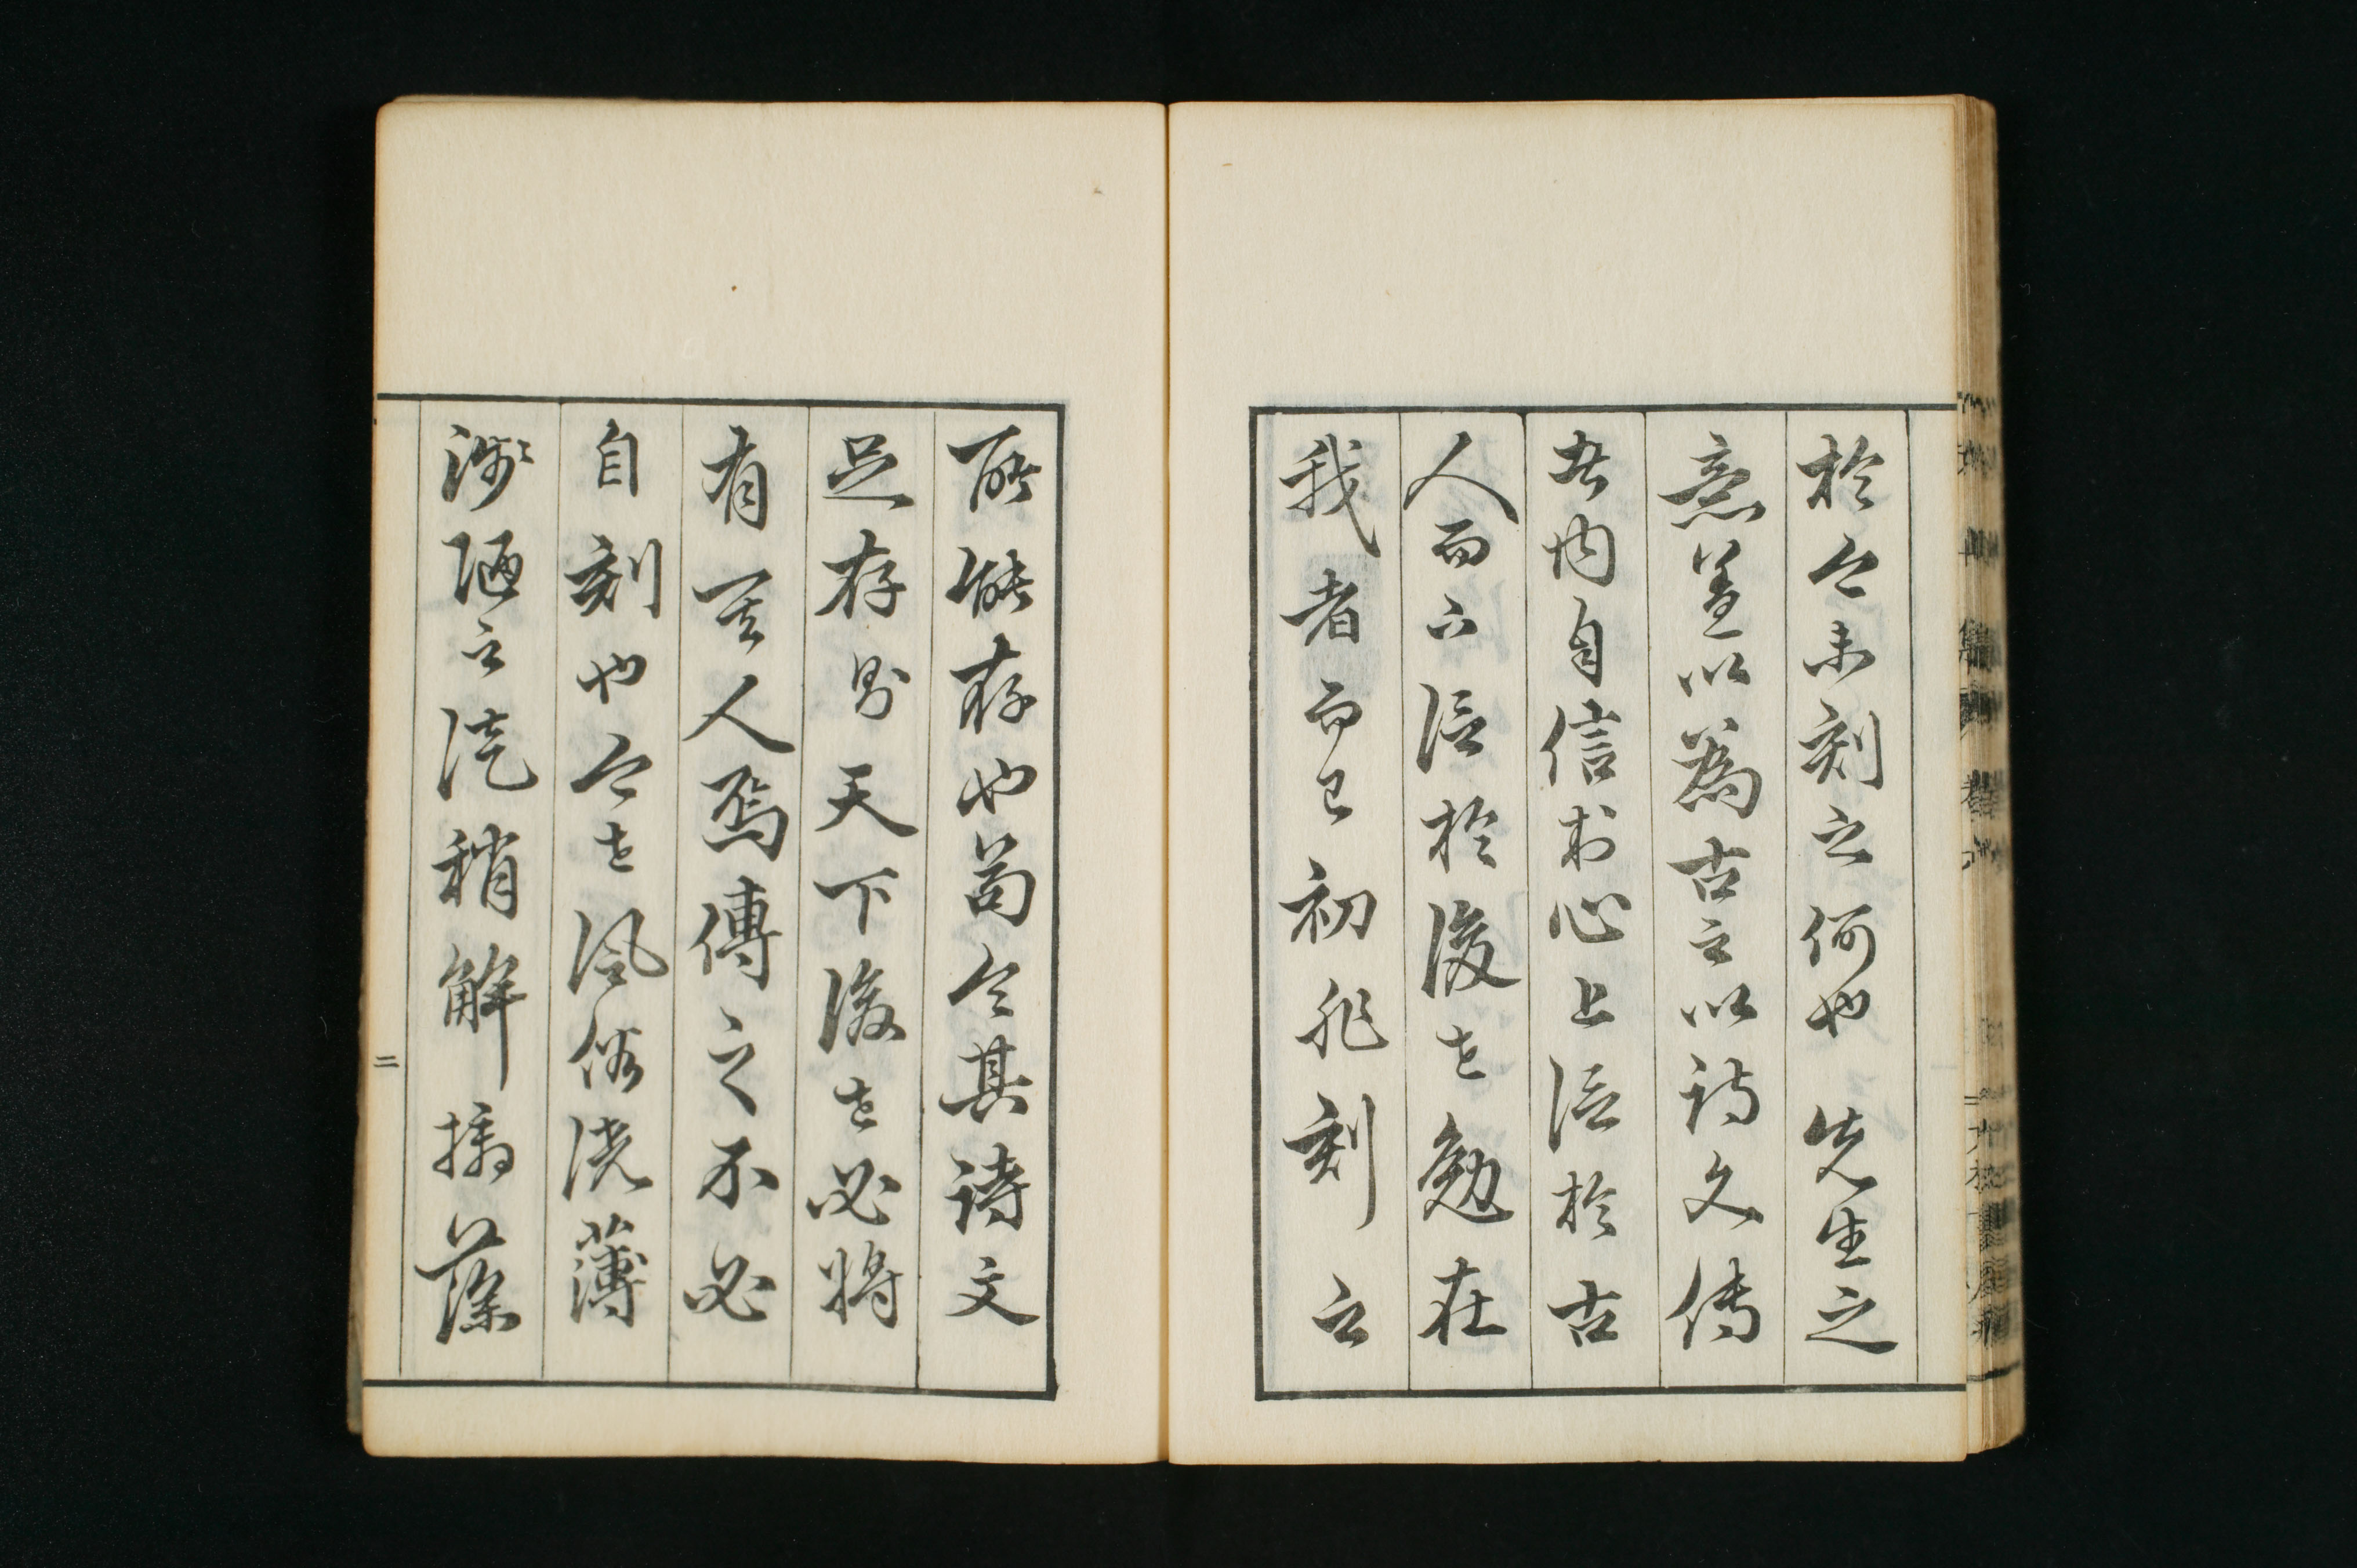 於今未刻之何也　先生之
意蓋以為古之以詩文傳
者内自信於心上信於古
人而下信於後世勉在
我者而已初非刻之
所能存也苟令其詩文
足存則天下後世必將
有其人焉傳之不必
自刻也今世風俗澆薄
淺陋之流稍解摛藻
二